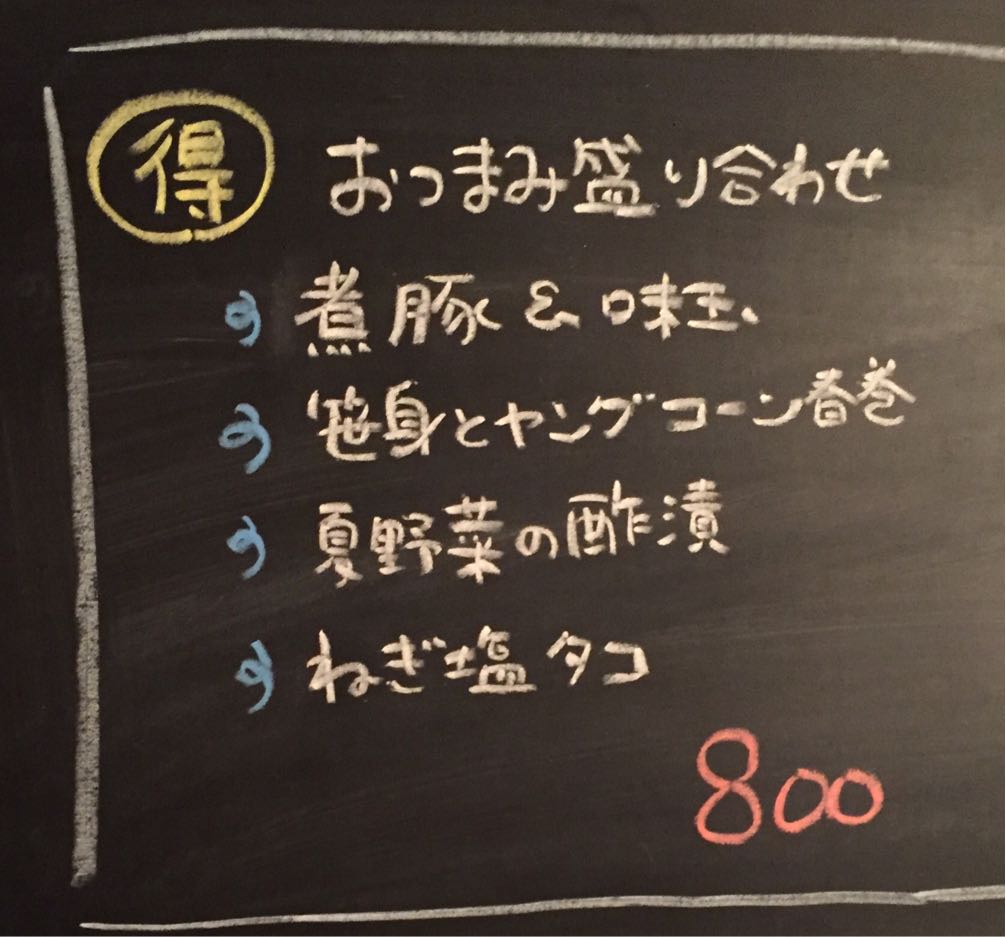 得 おつまみ盛り合わせ
煮豚&味玉
笹身とヤングコーン春巻
夏野菜の酢漬
ねぎ塩タコ
800